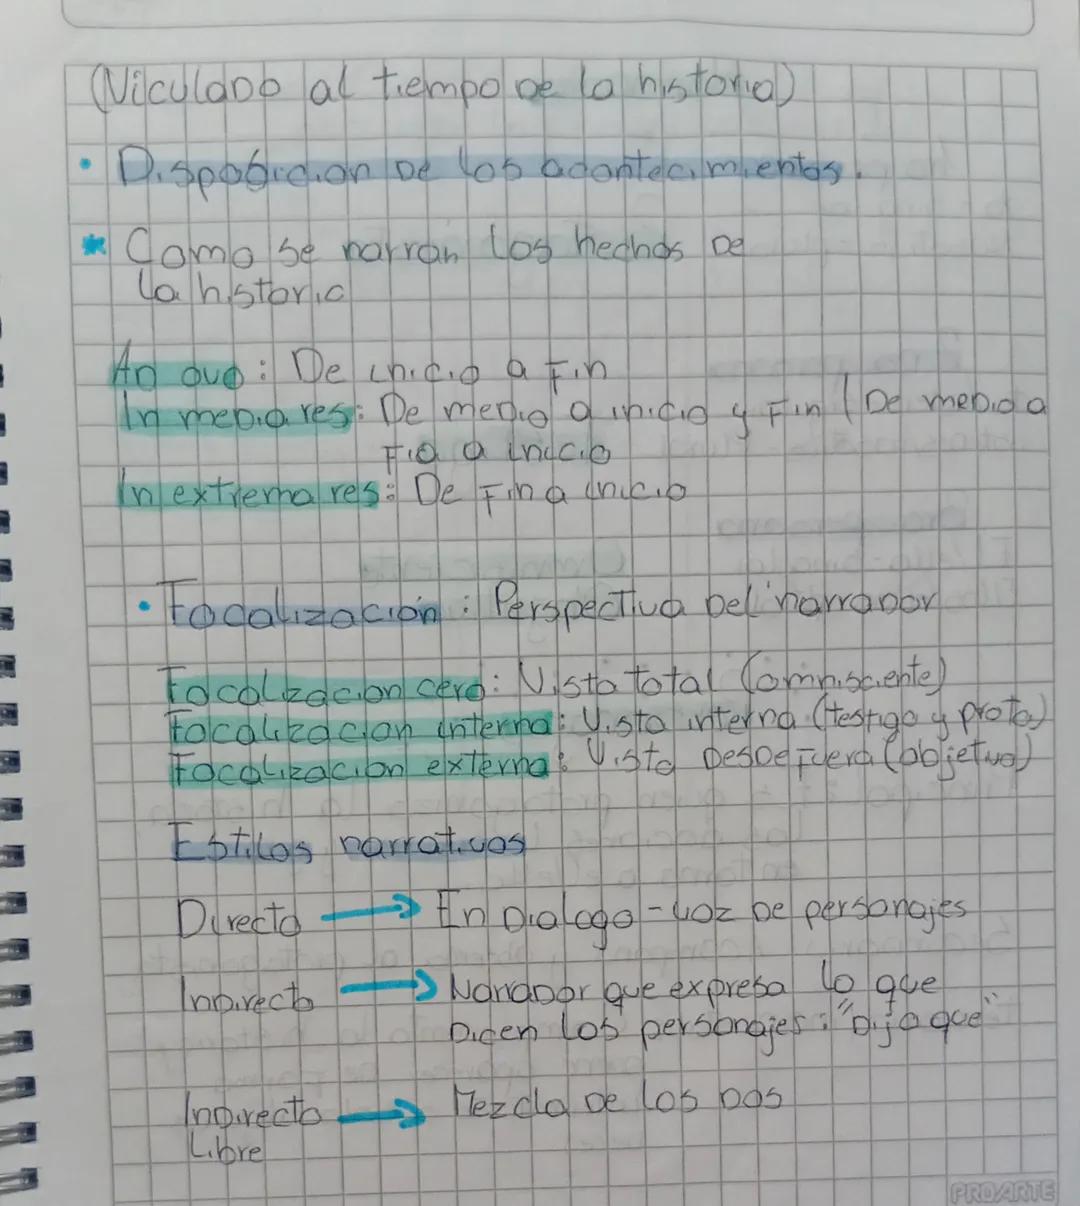 (Viculado al tiempo de la historia)
• Disposición de los acontecimientos.
* Como se narran los hechos de
la historia
Ab ovo: De inicio a fin
In medio res: De medio a inicio y fin (De medio a
a inicio
In extrema res: De fin a inicio
• Focalización: Perspectiva del narrador
Focalizacion cero: Vista total (omnisciente)
Focalizacion interna: Vista interna (testigo y prota)
Focalización externa: Vista desde fuera (objetivo)
Estilos narrativos
Directo → En Dialogo - voz de personajes
Indirecto → Narrador que expresa lo que
dicen los personajes: "Dijo que"
Indirecto → Mezcla de los dos
Libre
PROARTE